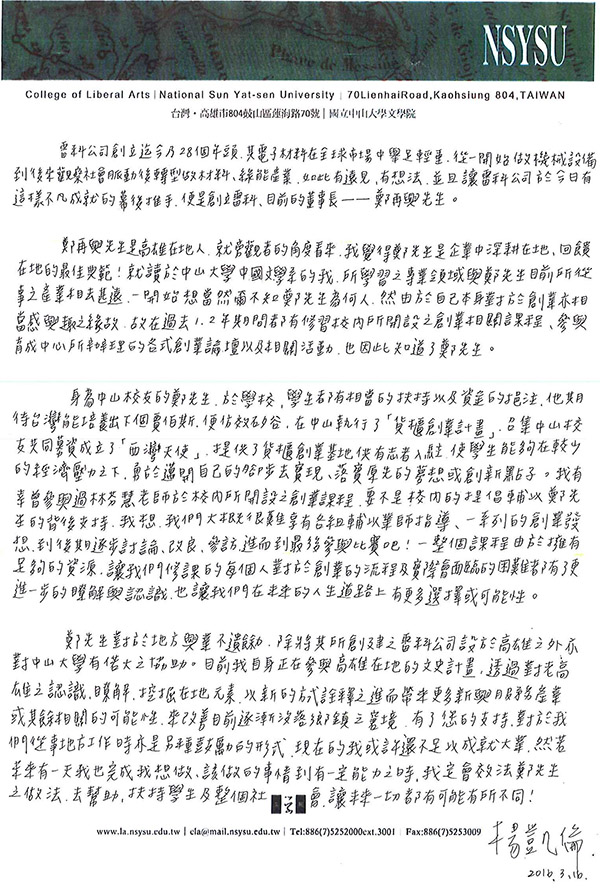 Plaire de Messine
NSYSU
College of Liberal Arts | National Sun Yat-sen University | 70LienhaiRoad,Kaohsiung 804,TAIWAN
台灣・高雄市804鼓山區蓮海路70號 | 國立中山大學文學院
雷科公司創立迄今乃28個年頭,其電子材料在全球市場中舉足輕重,從一開始做機械設備
到後來觀察社會脈動後轉型做材料、綠能產業,如此有遠見、有想法,並且讓雷科公司於今日有
這樣不凡成就的幕後推手,便是創立雷科、目前的董事長——鄭再興先生。
鄭再興先生是高雄在地人,就旁觀者的角度看來,我覺得鄭先生是企業中深耕在地、回饋
在地的最佳典範!就讀於中山大學中國文學系的我,所學習之專業領域與鄭先生目前所從
事之產業相去甚遠,一開始想當然爾不知鄭先生為何人,然由於自己本身對於創業亦相
當感興趣之緣故,故在過去1、2年期間都有修習校內所開設之創業相關課程、參與
育成中心所辦理的各式創業論壇以及相關活動,也因此知道了鄭先生。
身為中山校友的鄭先生,於學校、學生都有相當的扶持以及資金的挹注,他期
待台灣能培養出下個賈伯斯,便仿效矽谷,在中山執行了「貨櫃創業計畫」,召集中山校
友共同募資成立了「西灣天使」,提供了貨櫃創業基地供有志者入駐,使學生能夠在較少
的經濟壓力之下,勇於邁開自己的腳步去實現、落實原先的夢想或創新點子。我有
幸曾參與過林芬慧老師於校內所開設之創業課程,要不是校內的提倡輔以鄭先
生的背後支持,我想,我們大概很難享有各組輔以業師指導、一系列的創業發
想,到後期逐步討論、改良、參訪,進而到最後參與比賽吧!一整個課程由於擁有
足夠的資源,讓我們修課的每個人對於創業的流程及實際會面臨的困難都有了更
進一步的瞭解與認識,也讓我們在未來的人生道路上有更多選擇或可能性。
鄭先生對於地方興業不遺餘力,除將其所創建之雷科公司設於高雄之外亦
對中山大學有偌大之協助。目前我自身正在參與高雄在地的文史計畫,透過對老高
雄之認識、瞭解,挖掘在地元素,以新的方式詮釋之進而帶來更多新興月縣產業
或其餘相關的可能性,來改善目前逐漸沒落鄉鎮之窘境,有了您的支持,對於我
們從事地方工作時亦是另種鼓勵的形式,現在的我或許還不足以成就大業,然若
未來有一天我也完成我想做、該做的事情到有一定能力之時,我定會效法鄭先生
之做法,去幫助,扶持學生及整個社會,讓未來一切都有可能有所不同!
www.la.nsysu.edu.tw | cla@mail.nsysu.edu.tw | Tel:886(7)5252000ext.3001 Fax:886(7)5253009
楊凱倫
2016.3.16.